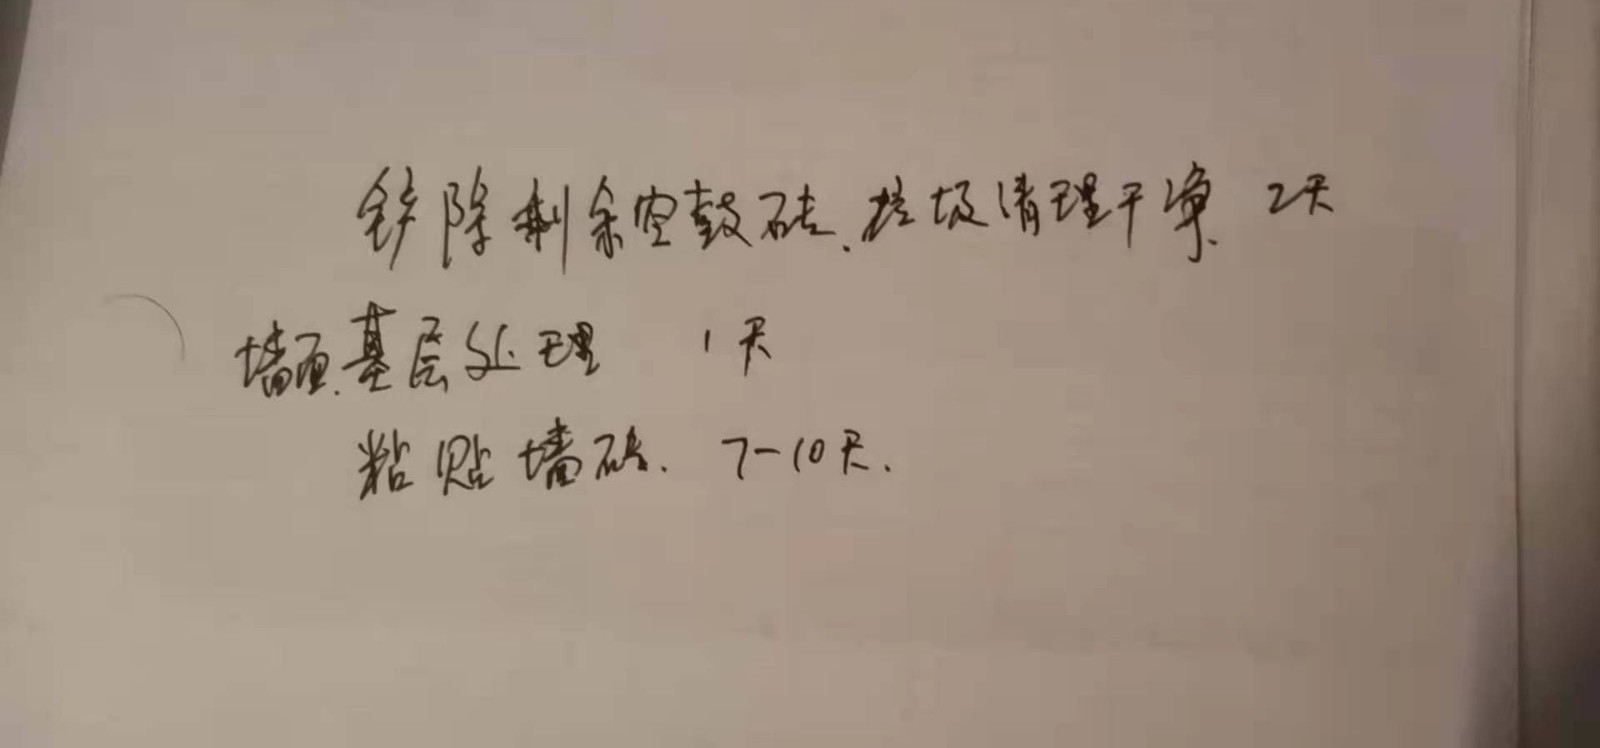 铲除剩余空鼓砖、垃圾清理干净 2天
墙面基层处理 1天
粘贴墙砖. 7-10天.